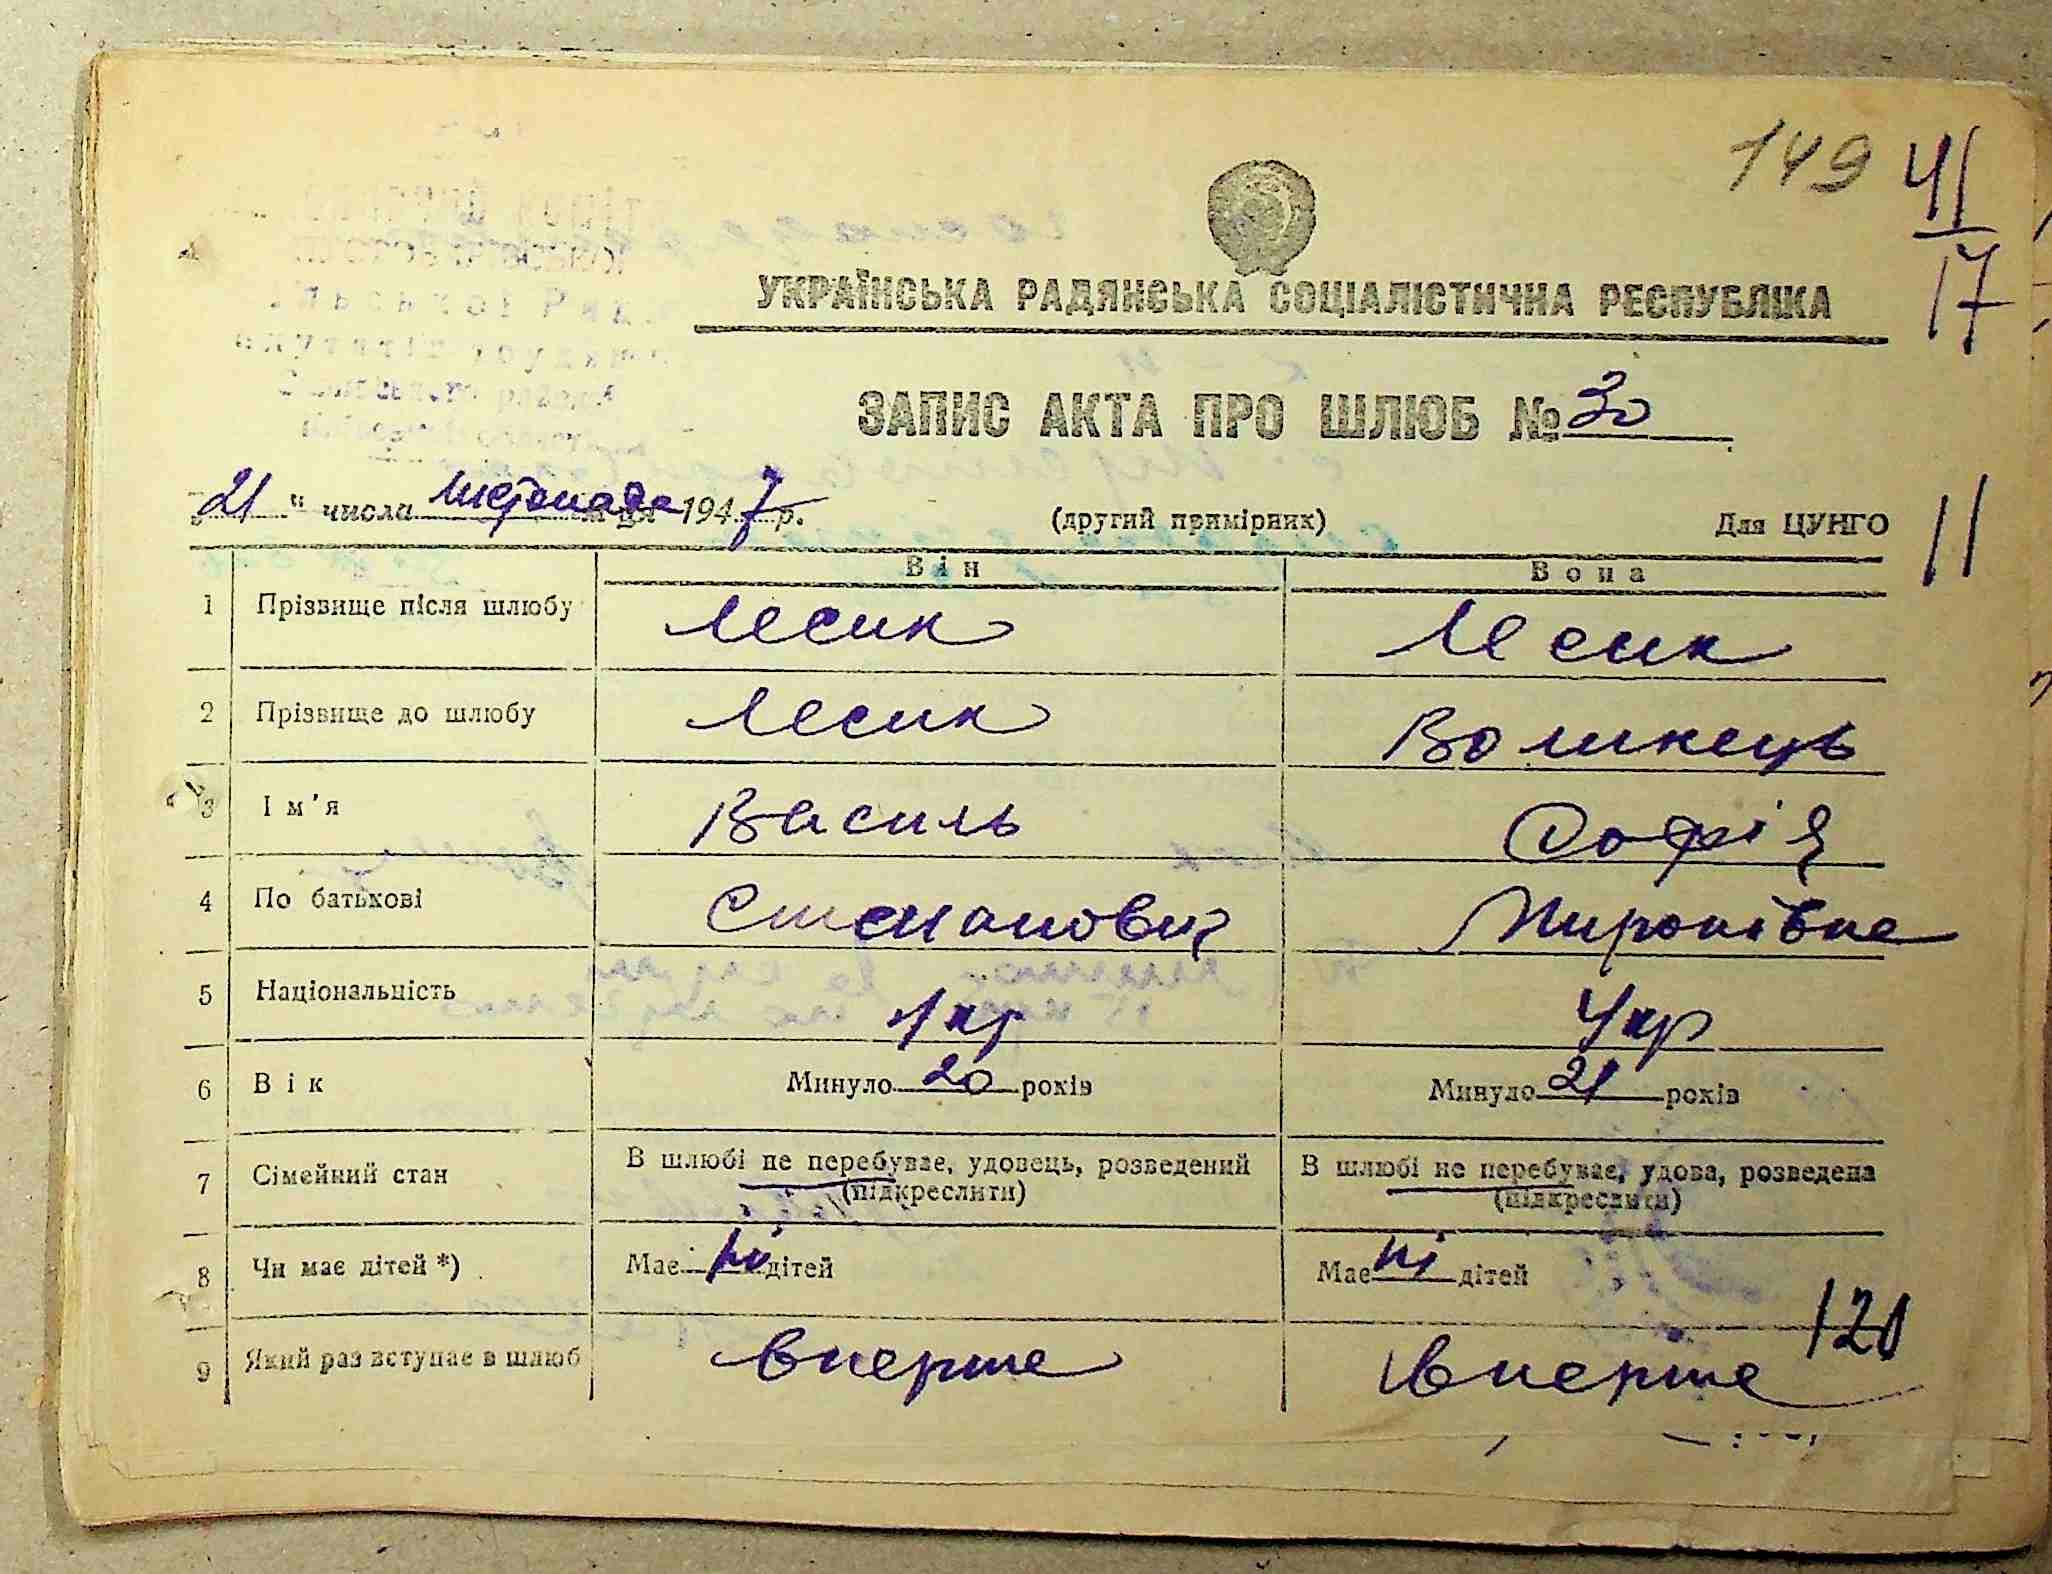 149
41
17
УКРАЇНСЬКА РАДЯНСЬКА СОЦІАЛІСТИЧНА РЕСПУБЛІКА
ЗАПИС АКТА ПРО ШЛЮБ № 30
„21" числа листопада м-ця 1947 р. (другий примірник) Для ЦУНГО
11
Він Вона
1 Прізвище після шлюбу Лесик Лесик
2 Прізвище до шлюбу Лесик Волинець
3 Ім'я Василь Софія
4 По батькові Степанович Миронівна
5 Національність Укр Укр
6 Вік Минуло 20 років Минуло 21 років
7 Сімейний стан В шлюбі не перебуває, удовець, розведений (підкреслити) В шлюбі не перебуває, удова, розведена (підкреслити)
8 Чи має дітей *) Має ні дітей Має ні дітей
120
9 Який раз вступає в шлюб вперше вперше